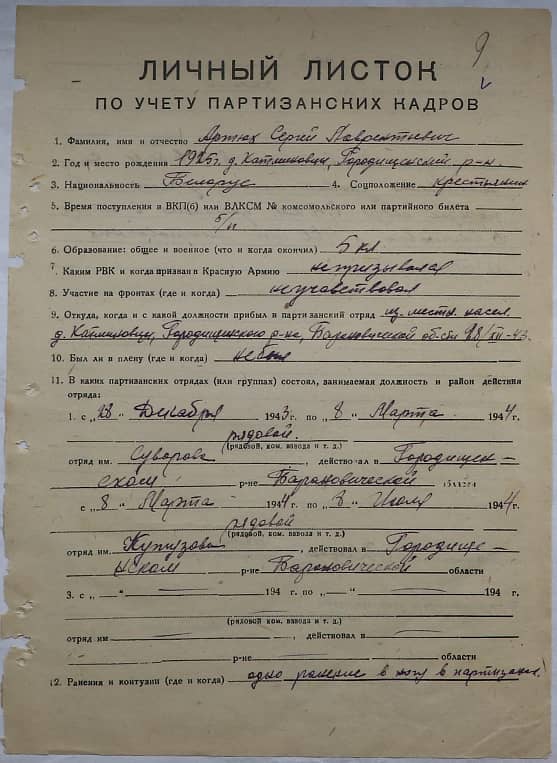 9
ЛИЧНЫЙ ЛИСТОК
ПО УЧЕТУ ПАРТИЗАНСКИХ КАДРОВ
1. Фамилия, имя и отчество Артюх Сергей Лаврентьевич
2. Год и место рождения 1925 г. д. Катлиновцы, Городищенский р-н
3. Национальность Беларус 4. Соцположение крестьянин
5. Время поступления в ВКП(б) или ВЛКСМ № комсомольского или партийного билета
б/п
6. Образование: общее и военное (что и когда окончил) 5 кл
7. Каким РВК и когда призван в Красную Армию непризывался
8. Участие на фронтах (где и когда) неучавствовал
9. Откуда, когда и с какой должности прибыл в партизанский отряд из местн. насел.
д. Катлиновцы, Городищенского р-на, Барановической обл-сти 28/XII-43.
10. Был ли в плену (где и когда) небыл
11. В каких партизанских отрядах (или группах) состоял, занимаемая должность и район действия
отряда:
1. с „28“ Декабря 1943 г. по „8“ Марта 1944 г.
рядовой.
(рядовой, ком. взвода и т. д.)
отряд им. Суворова, действовал в Городищен-
ском р-не Барановической области
с „8“ Марта 1944 г. по „8“ Июля 1944 г.
рядовой
(рядовой, ком. взвода и т. д.)
отряд им. Кутузова, действовал в Городище-
нском р-не Барановической области
3. с „ “ 194 г. по „ “ 194 г.
(рядовой, ком. взвода и т. д.)
отряд им , действовал в
р-не области
12. Ранения и контузии (где и когда) одно ранение в ногу в партизанах.